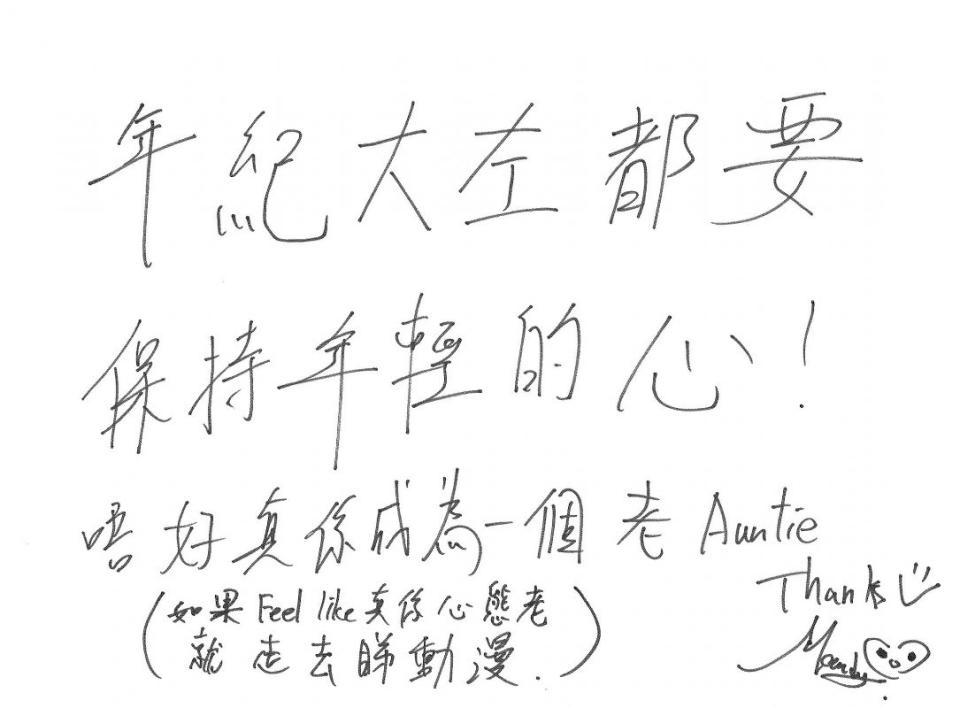 年紀大左都要
保持年輕的心!
唔好真係成為一個老Auntie
(如果Feel like真係心態老
就走去睇動漫.)
Thanks
Mandy